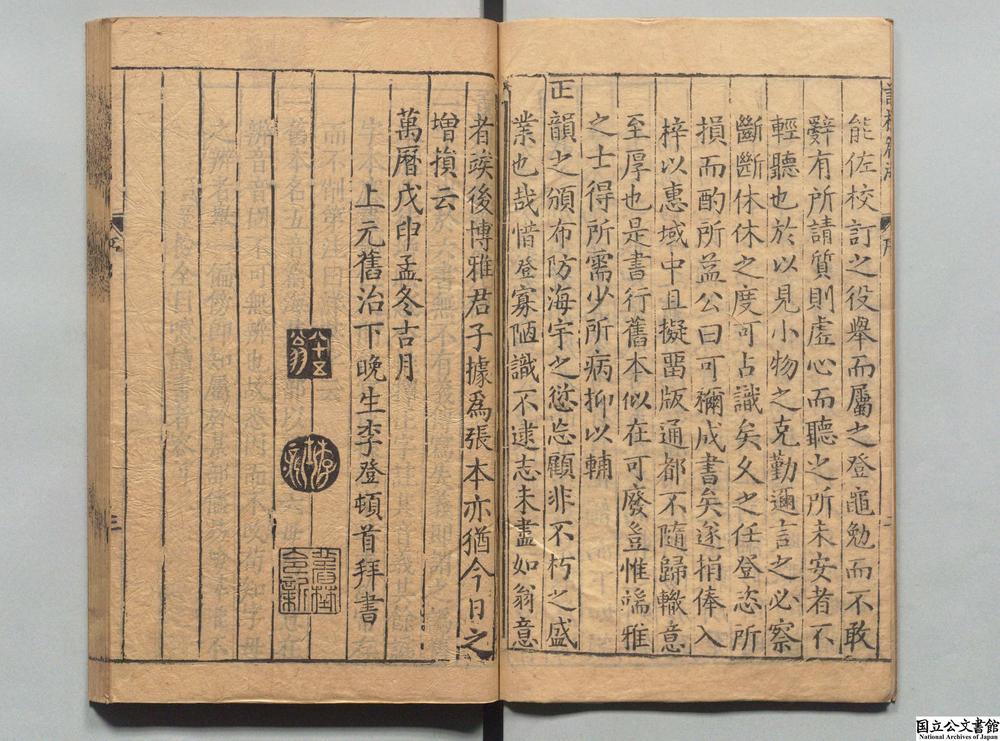 能佐校訂之役舉而屬之登黽勉而不敢
辭有所請質則虛心而聽之所未安者不
輕聽也於以見小物之克勤邇言之必察
斷斷休休之度可占識矣久之任登恣所
損而酌所益公曰可禰成書矣遂捐俸入
梓以惠域中且擬畱版通都不隨歸轍意
至厚也是書行舊本似在可廢豈惟端雅
之士得所需少所病抑以輔
正韻之頒布防海宇之愆忘顧非不朽之盛
業也哉惜登寡陋識不逮志未盡如翁意
者竢後博雅君子據爲張本亦猶今日之
增損云
萬曆戊申孟冬吉月
上元舊治下晚生李登頓首拜書
八十五翁
李登
三
国立公文書館
National Archives of Japan